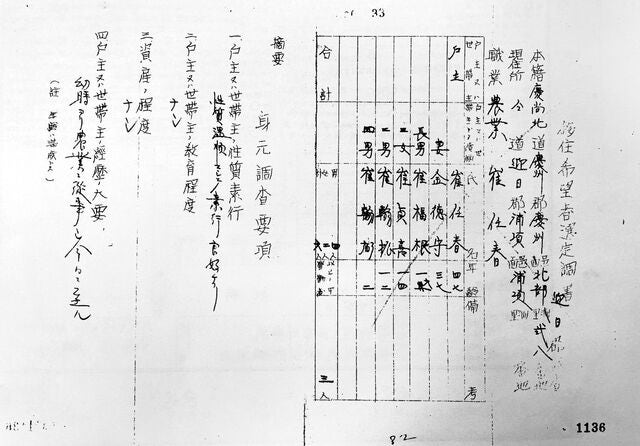 移住希望者選定調書
迎日郡
本籍慶尚北道慶州郡慶州邑北部里弐八番地
現住所 仝 道迎日郡浦項邑浦項里 番地
職業 農業 崔任春
氏名 年齢 備考
戸主 崔任春 四七
妻 金徳守 三七
長男 崔楊根
二女 崔貞喜 一四
二男 崔
四男 崔 二
合計 三人
摘要
身元調査要項
一、戸主又ハ世帯主ノ性質素行
性質温順ニシテ素行良好ナリ
二、戸主又ハ世帯主ノ教育程度
ナシ
三、資産ノ程度
ナシ
四、戸主又ハ世帯主ノ経歴ノ大要
幼時ヨリ農業ニ従事シ今日ニ至ル
33
1136